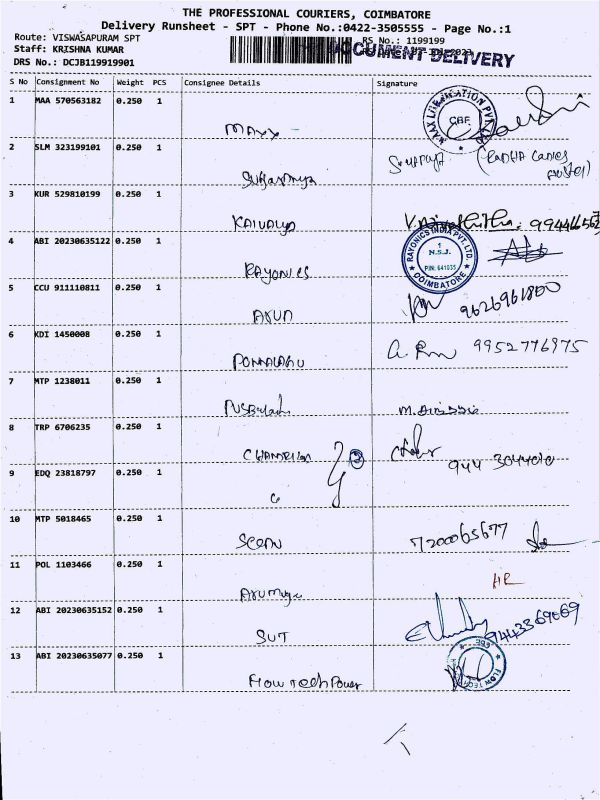 THE PROFESSIONAL COURIERS, COIMBATORE
Delivery Runsheet - SPT - Phone No.:0422-3505555 - Page No.:1
Route: VISWASAPURAM SPT
RS No.: 1199199
Staff: KRISHNA KUMAR
DOCUMENT DELIVERY
DRS No.: DCJB119919901
S No Consignment No Weight PCS Consignee Details Signature
1 MAA 570563182 0.250 1
CBE
Maxx
2 SLM 323199101 0.250 1
3 KUR 529810199 0.250 1
KAIVALYA
4 ABI 20230635122 0.250 1
RAYONICS INDIA PVT.LTD. 1 N.S.J. PIN: 641035 COIMBATORE
RAYONICS
5 CCU 911110811 0.250 1
ARUN 9626961800
6 KDI 1450008 0.250 1
9952776975
7 MTP 1238011 0.250 1
8 TRP 6706235 0.250 1
944 3044010
9 EDQ 23818797 0.250 1
G
10 MTP 5018465 0.250 1
7200065677
11 POL 1103466 0.250 1
HR
12 ABI 20230635152 0.250 1
SUT 9443369069
13 ABI 20230635077 0.250 1
Flow Tech Power